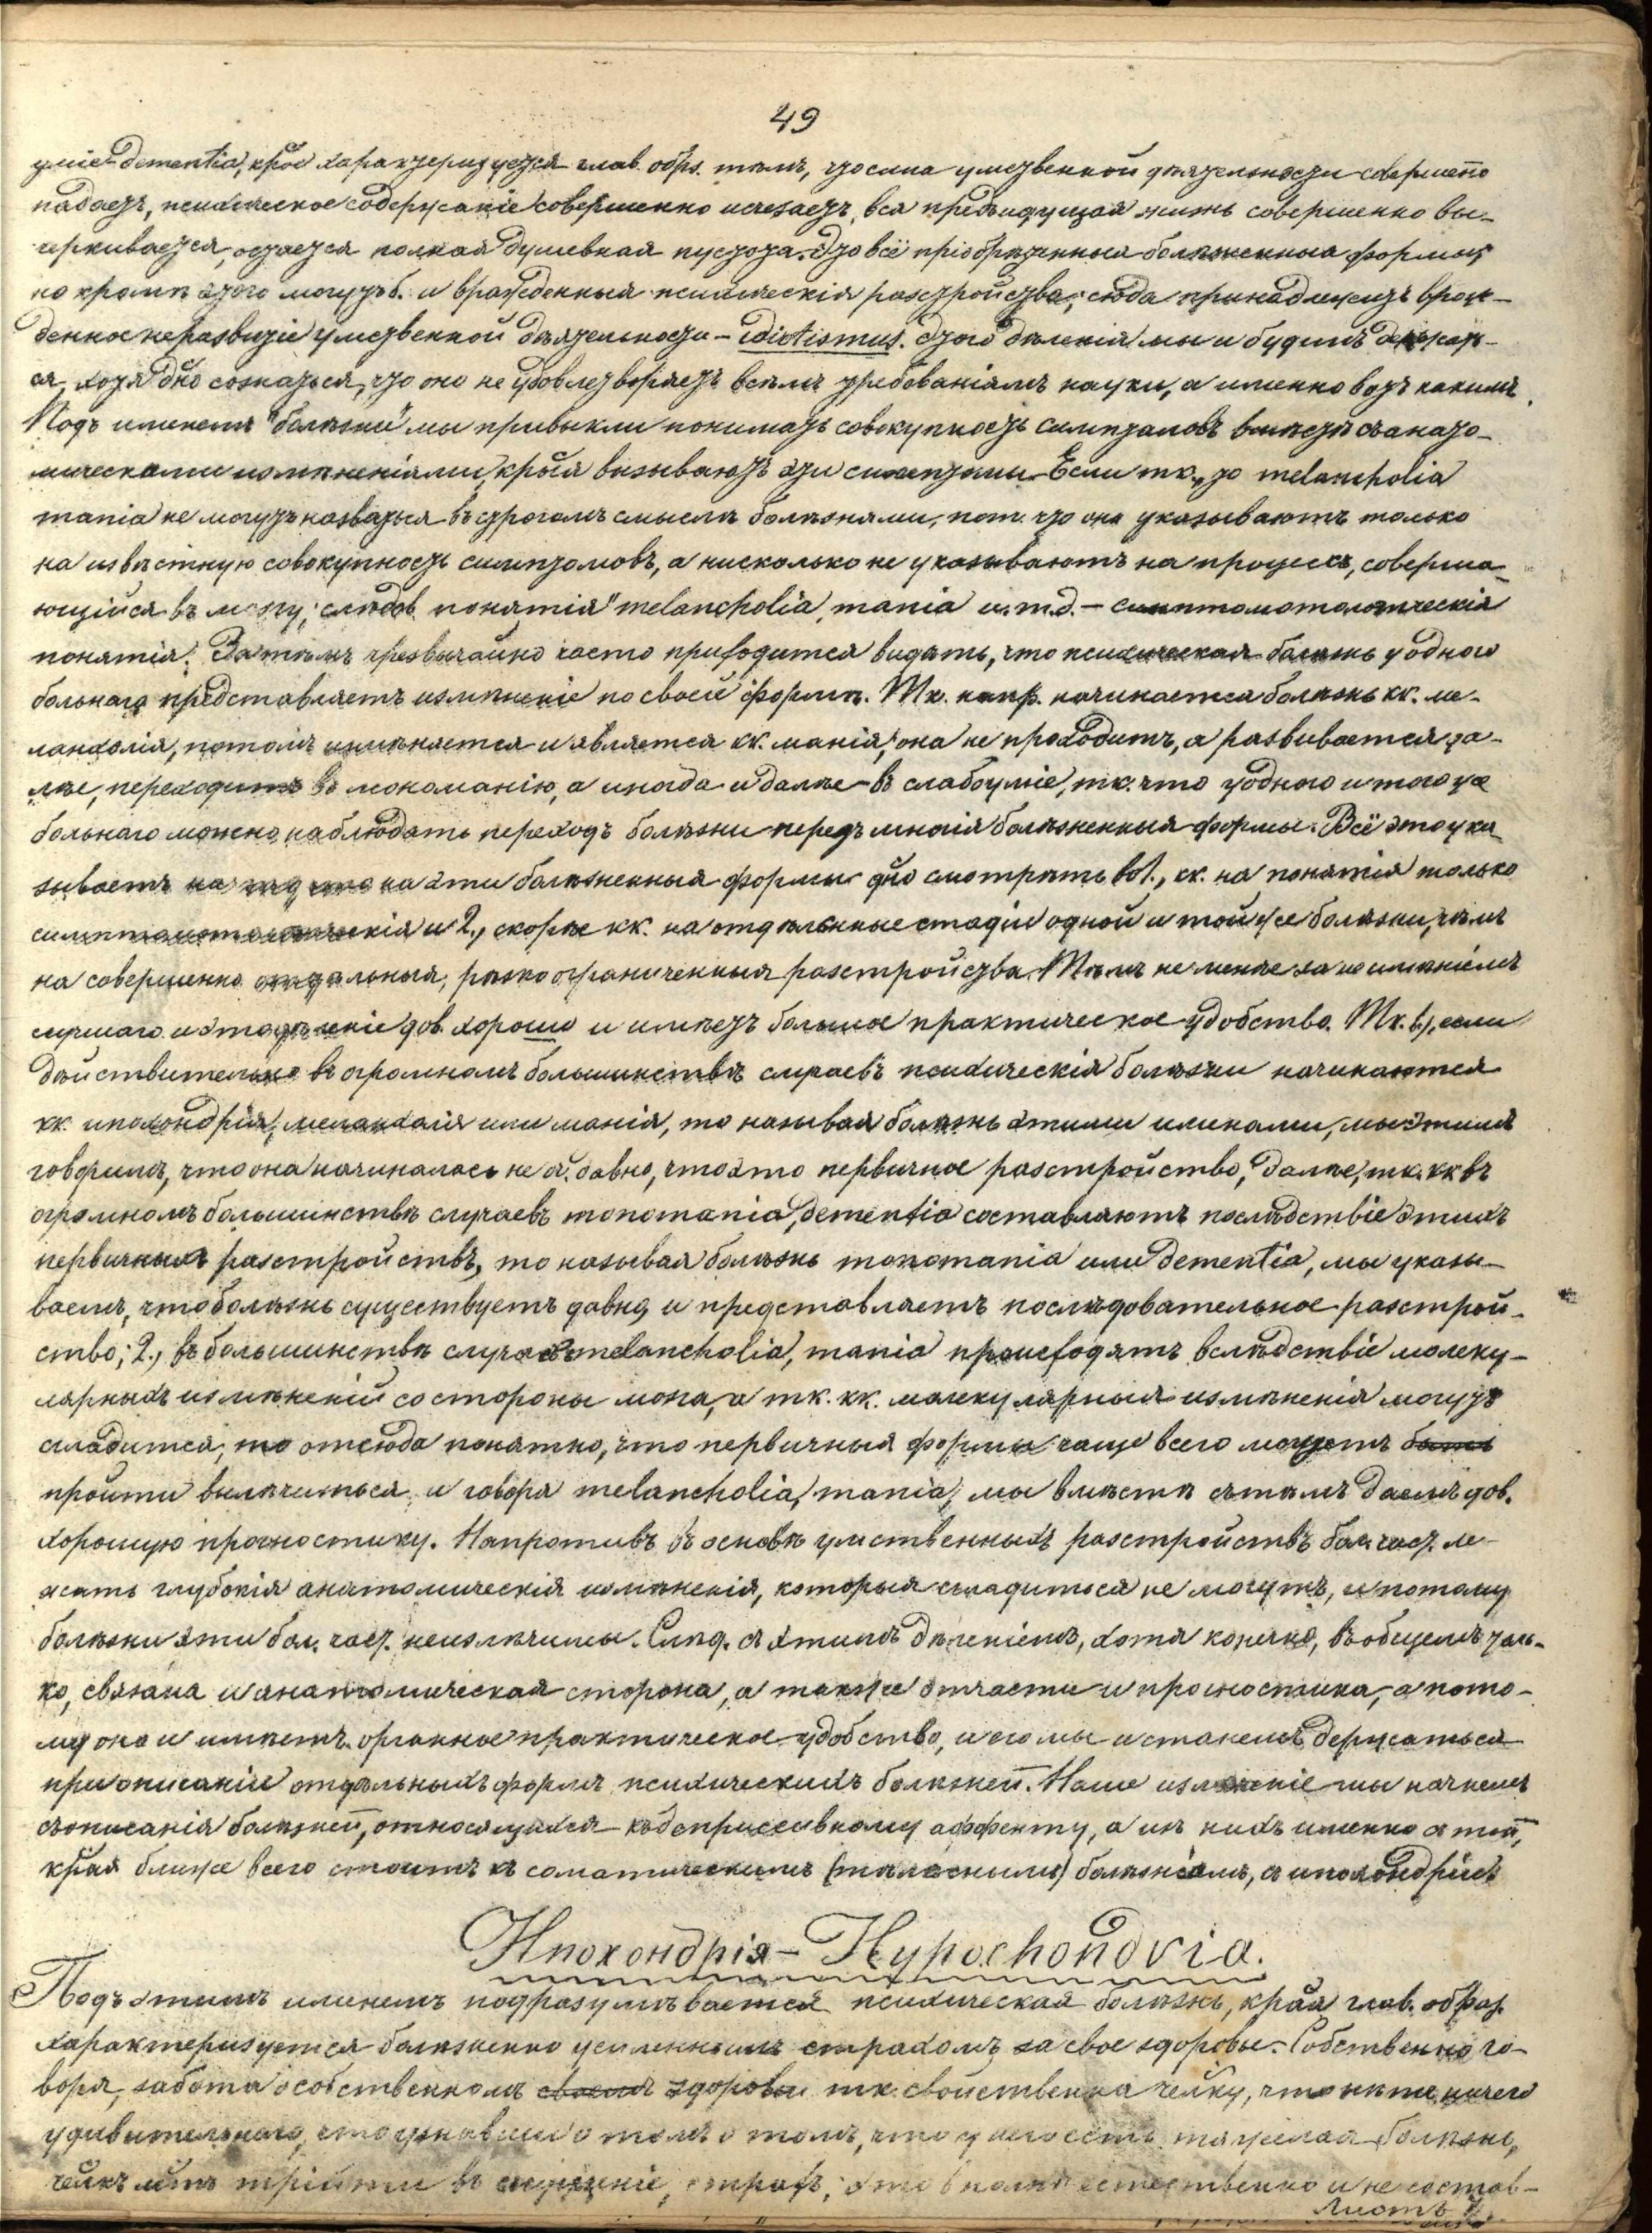 49
уміе – dementia, к̃рое характеризуется глав. обрз. тѣмъ, что сила умственной дѣятельности совершен̃о
падаетъ, психическое содержаніе совершенно исчезаетъ, вся предъидущая жизнь совершенно вы-
черкивается, остается полная душевная пустота. Это всё пріобрѣтенныя болѣзненныя формы,
но кромѣ этого могутъ б. и врожденныя психическія разстройства; сюда принадлежитъ врож-
денное неразвитіе умственной дѣятельности – idiotismus. Этого дѣленія мы и будемъ держат-
ся, хотя д̃но сознаться, что оно не удовлетворяетъ всѣмъ требованіямъ науки, а именно вотъ какимъ.
Подъ именемъ "болѣзни" мы привыкли понимать совокупность симптомовъ вмѣстѣ съ анато-
мическами измѣненіями, к̃рыя вызываютъ эти симптомы. Если тк., то melancholia
mania не могутъ назваться въ строгомъ смыслѣ болѣзнями, пот. что онѣ указываютъ только
на извѣстную совокупность симптомовъ, а нисколько не указываютъ на процессъ, соверша-
ющійся въ мозгу; слѣдов. понятія "melancholia, mania и.т.д. – симптомотологическія
понятія. Затѣмъ чрезвычайно часто приходится видать, что психическая болѣзнь у одного
больнаго представляетъ измѣненіе по своей формѣ. Тк. напр. начинается болѣзнь кк. ме-
ланхолія, потомъ измѣняется и является кк. манія; она не проходитъ, а развивается да-
лѣе, переходитъ въ мономанію, а иногда и далѣе – въ слабоуміе, тк. что у одного и того же
больнаго можно наблюдать переходъ болѣзни черезъ многія болѣзненныя формы. Всё это ука-
зываетъ на эти болѣзненныя формы д̃но смотрѣть во 1., кк. на понятія только
симптомотологическія и 2., скорѣе кк. на отдѣльнные стадіи одной и той же болѣзни, чѣмъ
на совершенно отдѣльныя, рѣзко ограниченныя разстройства. Тѣмъ не менѣе за неимѣніемъ
лучшаго и это дѣленіе дов. хорошо и имѣетъ большое практическое удобство. Тк. 1), если
дѣйствительно въ огромномъ большинствѣ случаевъ психическія болѣзни начинаются
кк. ипохондрія, меланхолія или манія, то называя болѣзнь этими именами, мы этимъ
говоримъ, что она начиналась не оч. давно, что это первичное разстройство, далѣе, тк. кк въ
огромномъ большинствѣ случаевъ monomania, dementia составляютъ послѣдствіе этихъ
первичныхъ разстройствъ, то называя болѣзнь monomania или dementia, мы указы-
ваемъ, что болѣзнь существуетъ давно, и представляетъ послѣдовательное разстрой-
ство; 2., въ большинствѣ случаевъ melancholia, mania происходятъ вслѣдствіе молеку-
лярныхъ измѣненій со стороны мозга, а тк. кк. молекулярныя измѣненія могутъ
сгладится, то отсюда понятно, что первичныя формы чаще всего могутъ быть
пройти вылѣчиться, и говоря melancholia, mania, мы вмѣстѣ съ тѣмъ даемъ дов.
хорошую прогностику. Напротивъ въ основѣ умственныхъ разстройствъ бол. част. ле-
жать глубокія анатомическія измѣненія, которыя сгладиться не могутъ, и потому
болѣзни эти бол. част. неизлѣчимы. Слѣд. съ этимъ дѣленіемъ, хотя конечно, въ общемъ толь-
ко, связана и анатомическая сторона, а также отчасти и прогностика, а пото-
му оно и имѣетъ огромное практическое удобство, и его мы и станемъ держаться
при описаніи отдѣльныхъ формъ психическихъ болѣзней. Наше изложеніе мы начнемъ
съ описанія болѣзней, относящихся къ депрессивному аффекту, а изъ нихъ именно съ той,
к̃рая ближе всего стоитъ къ соматическимъ (тѣлеснымъ) болѣзнямъ, съ ипохондріи.
Ипохондрія – Hypochondria.
Подъ этимъ именемъ подразумѣвается психическая болѣзнь, к̃рая глав. образ.
характеризуется болѣзненно усиленнымъ страхомъ за свое здоровье. Собственно го-
воря, забота о собственномъ своемъ здоровьи тк. свойственна челку, что нѣтъ ничего
удивительнаго, что узнавши о томъ о томъ, что у него есть тяжелая болѣзнь,
челкъ прійти въ страхъ; это вполнѣ естественно и не состав-
Листъ 7